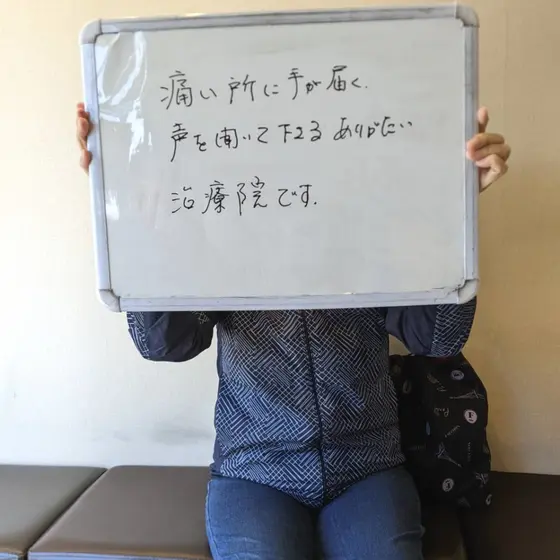 痛い所に手が届く.
声を聞いて下さる ありがたい
治療院です.